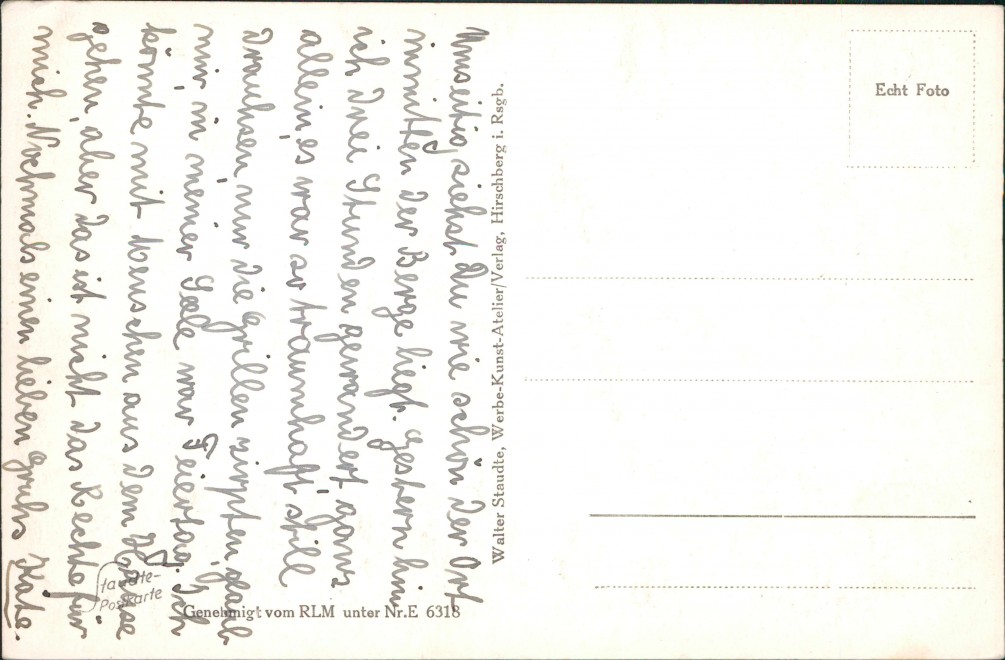 Umseitig siehst Du wie schön der Ort
inmitten der Berge liegt. Gestern bin
ich drei Stunden gewandert ganz
allein, es war so traumhaft still
draußen nur die Grillen zirpten, glaub
mir, in meiner Seele war Feiertag. Ich
könnte mit Menschen aus dem Hause
gehen, aber das ist nicht das Rechte für
mich. Nochmals einen lieben Gruhs Käte.
Staudte-
Postkarte
Genehmigt vom RLM unter Nr.E 6318
Walter Staudte, Werbe-Kunst-Atelier/Verlag, Hirschberg i. Rsgb.
Echt Foto